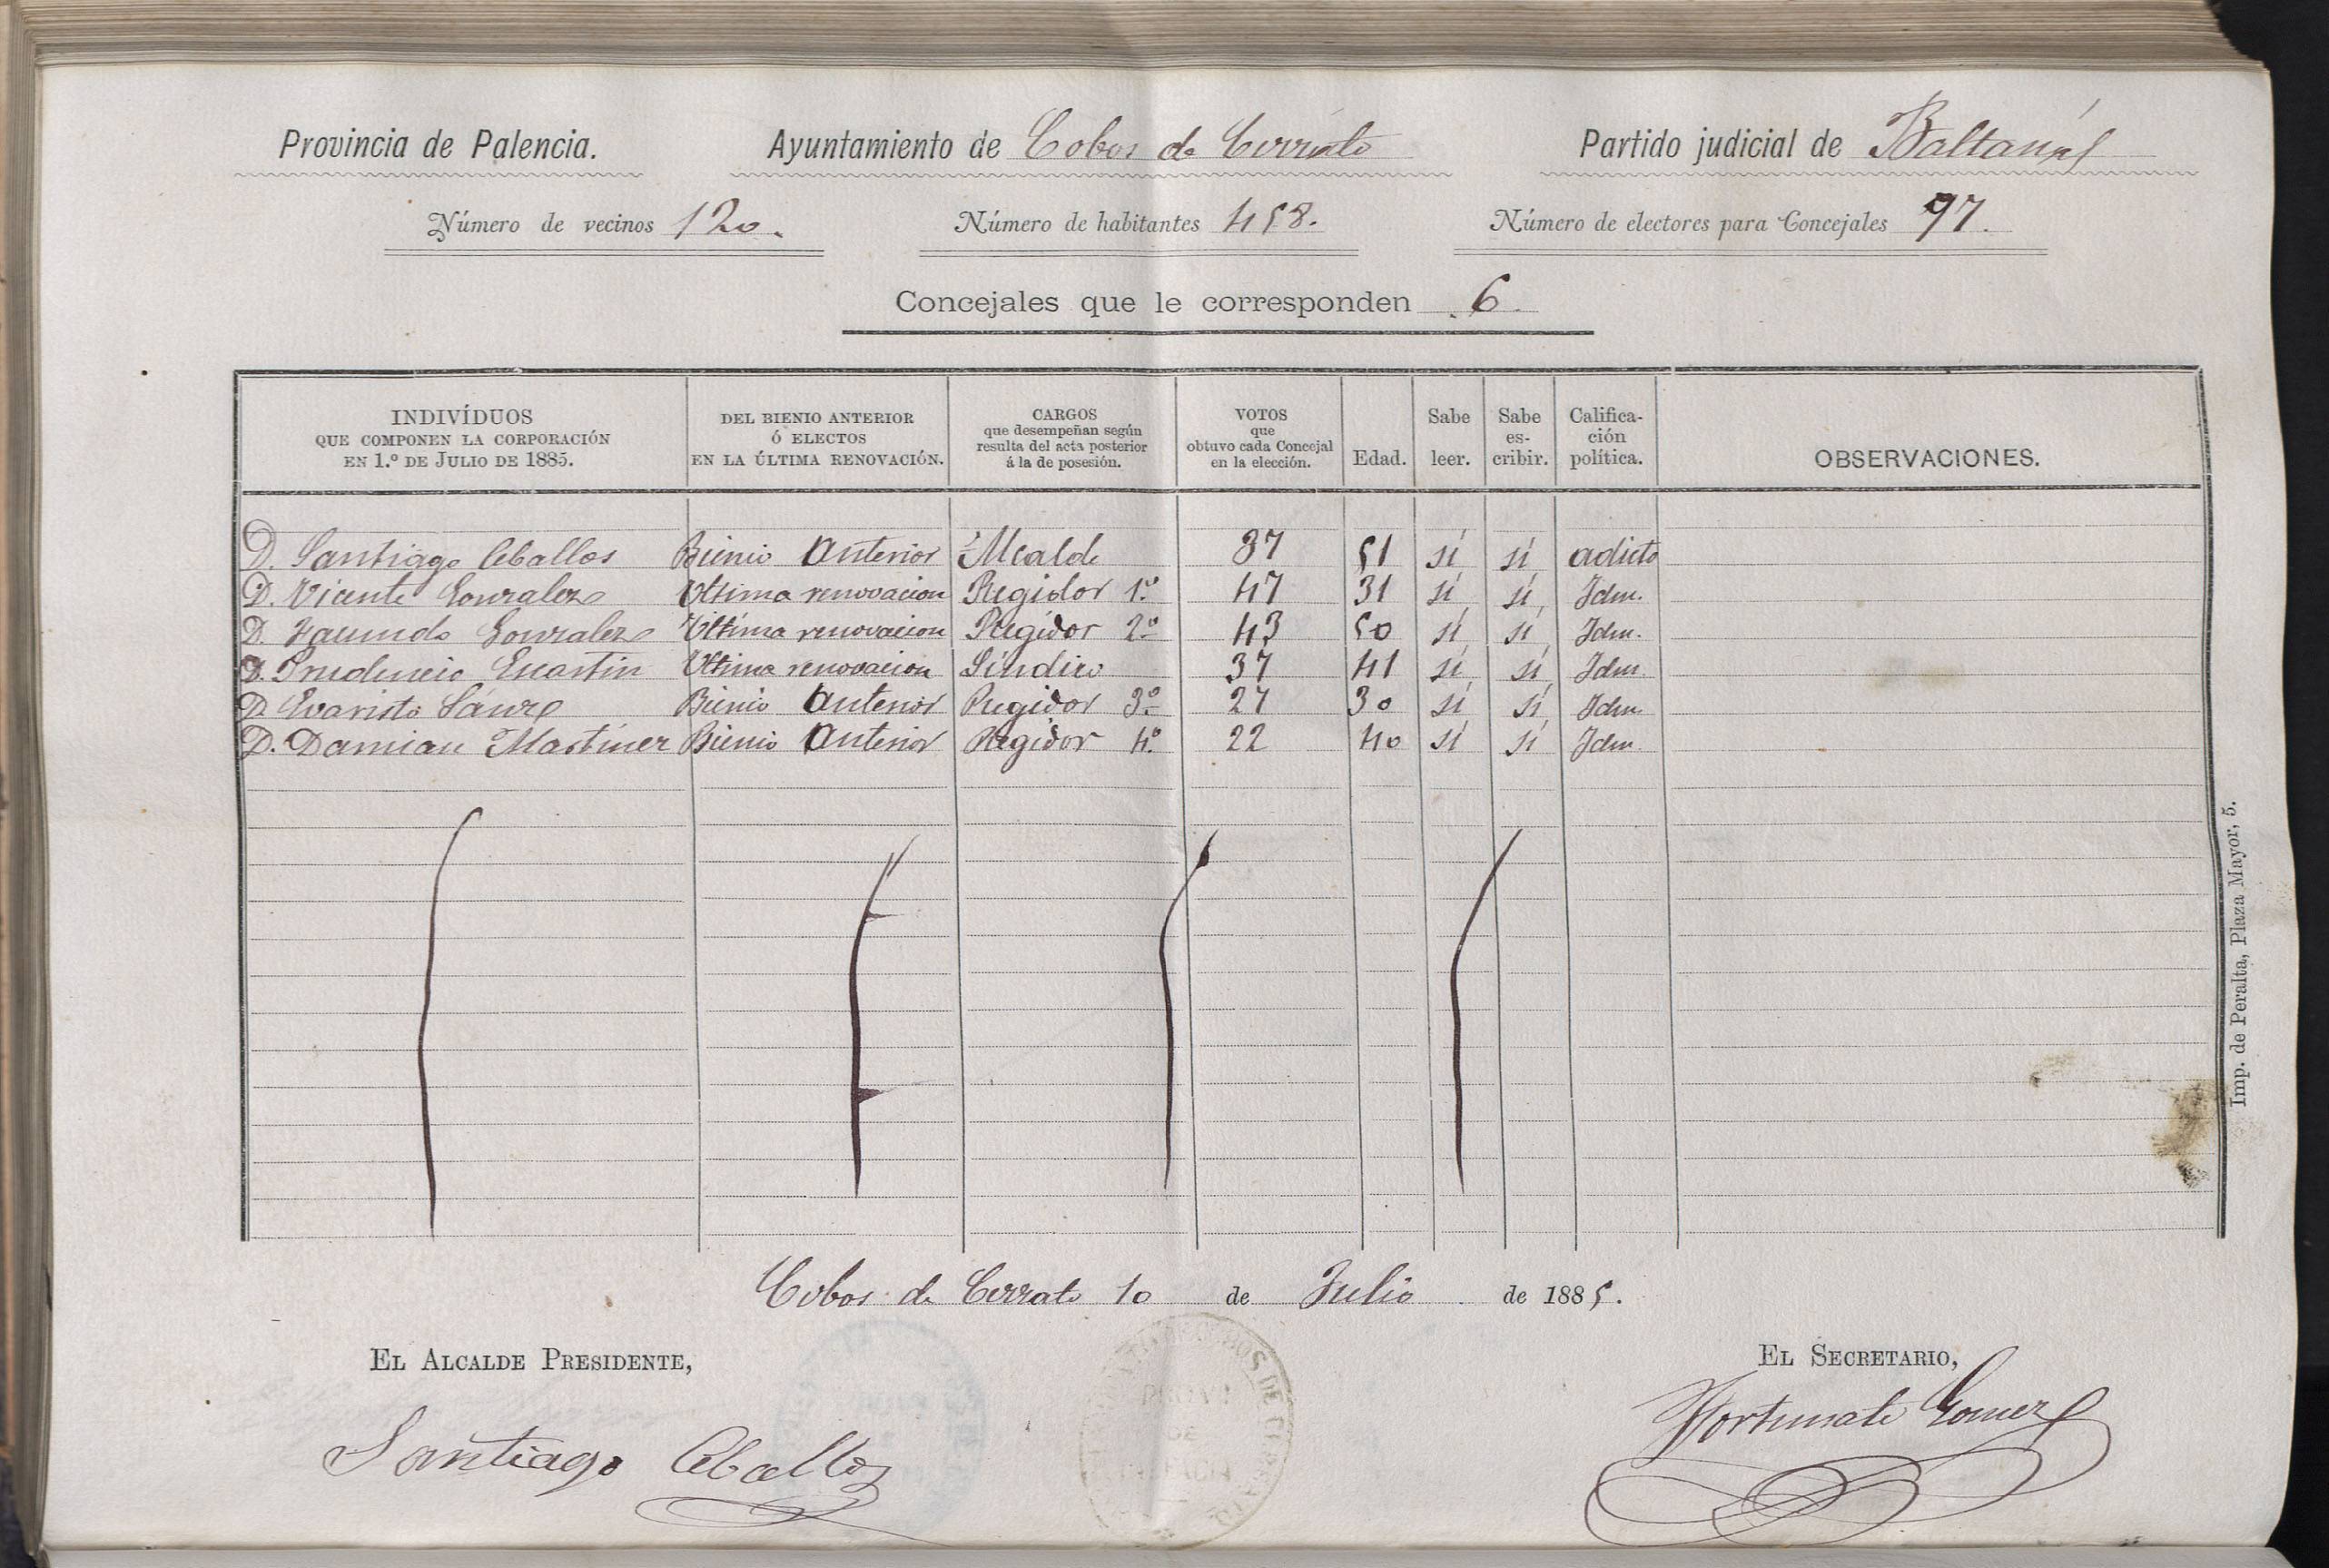 Provincia de Palencia. Ayuntamiento de Cobos de Cerrato Partido judicial de Baltanás
Número de vecinos 120. Número de habitantes 458. Número de electores para Concejales 97.
Concejales que le corresponden 6.
INDIVÍDUOS QUE COMPONEN LA CORPORACIÓN EN 1.º DE JULIO DE 1885. DEL BIENIO ANTERIOR Ó ELECTOS EN LA ÚLTIMA RENOVACIÓN. CARGOS que desempeñan según resulta del acta posterior á la de posesión. VOTOS que obtuvo cada Concejal en la elección. Edad. Sabe leer. Sabe es-cribir. Califica-ción política. OBSERVACIONES.
D. Santiago Ceballos Bienio Anterior Alcalde 37 51 sí sí adicto
D. Vicente Gonzalez Ultima renovacion Regidor 1.º 47 31 sí sí Idm.
D. Facundo Gonzalez Ultima renovacion Regidor 2.º 43 50 sí sí Idm.
D. Prudencio Ultima renovacion Síndico 37 41 sí sí Idm.
D. Evaristo Sánz Bienio Anterior Regidor 3.º 27 30 sí sí Idm.
D. Damian Martinez Bienio Anterior Regidor 4.º 22 40 sí sí Idm.
Cobos de Cerrato 10 de Julio de 1885.
EL ALCALDE PRESIDENTE, EL SECRETARIO,
Santiago Ceballos Fortunato Gomez
Imp. de Peralta, Plaza Mayor, 5.